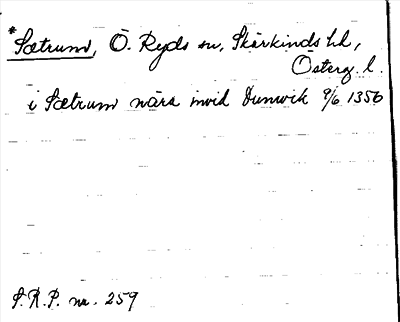 *Sætrum, Ö. Ryds sn, Skärkinds hd,
Österg. l.
i Sætrum nära invid Dunwik 9/6 1356
S.R.P. nr. 259